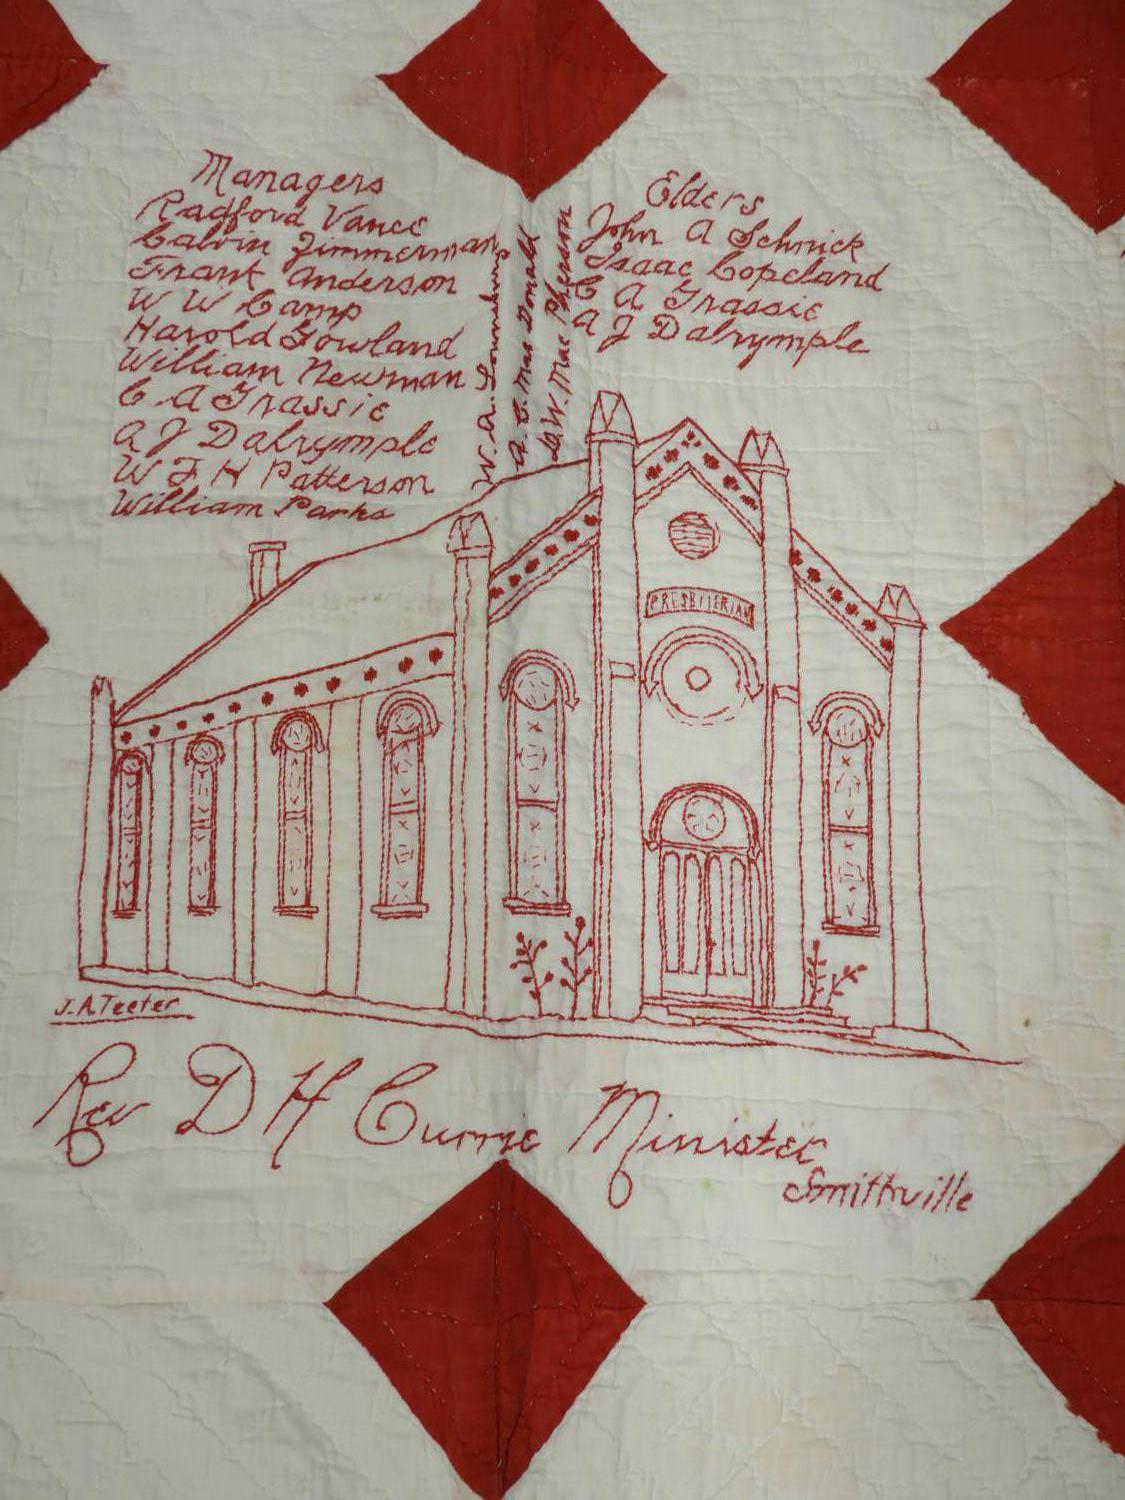 Managers
Radford Vance
Calvin Zimmerman
Frank Anderson
W W Camp
Harold Gowland
William Newman
C A Grassie
A J Dalrymple
W F H Patterson
William Parks
W. A. Lounsbury
A. C. Mac Donald
W. Mac Pherson
Elders
John A Schnick
Isaac Copeland
C A Grassie
A J Dalrymple
PRESBYTERIAN
J. A. Teeter
Rev D H Currie Minister
Smithville